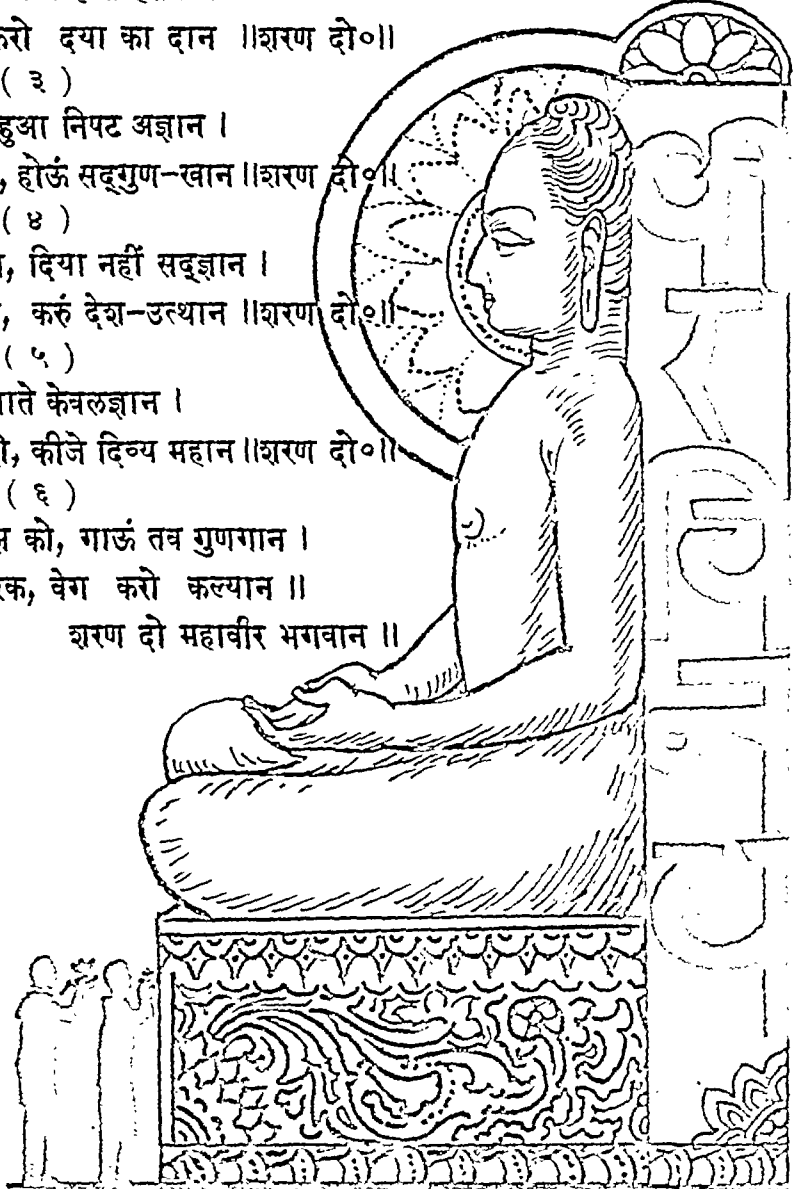 करो दया का दान ॥शरण दो०॥
( ३ )
हुआ निपट अज्ञान ।
, होऊं सद्‌गुण-खान॥शरण दो०॥
( ४ )
, दिया नहीं सद्ज्ञान ।
, करुं देश-उत्थान ॥शरण दो०॥
( ५ )
केवलज्ञान ।
, कीजे दिव्य महान॥शरण दो०॥
( ६ )
को, गाऊं तव गुणगान ।
, वेग करो कल्यान ॥
शरण दो महावीर भगवान ॥